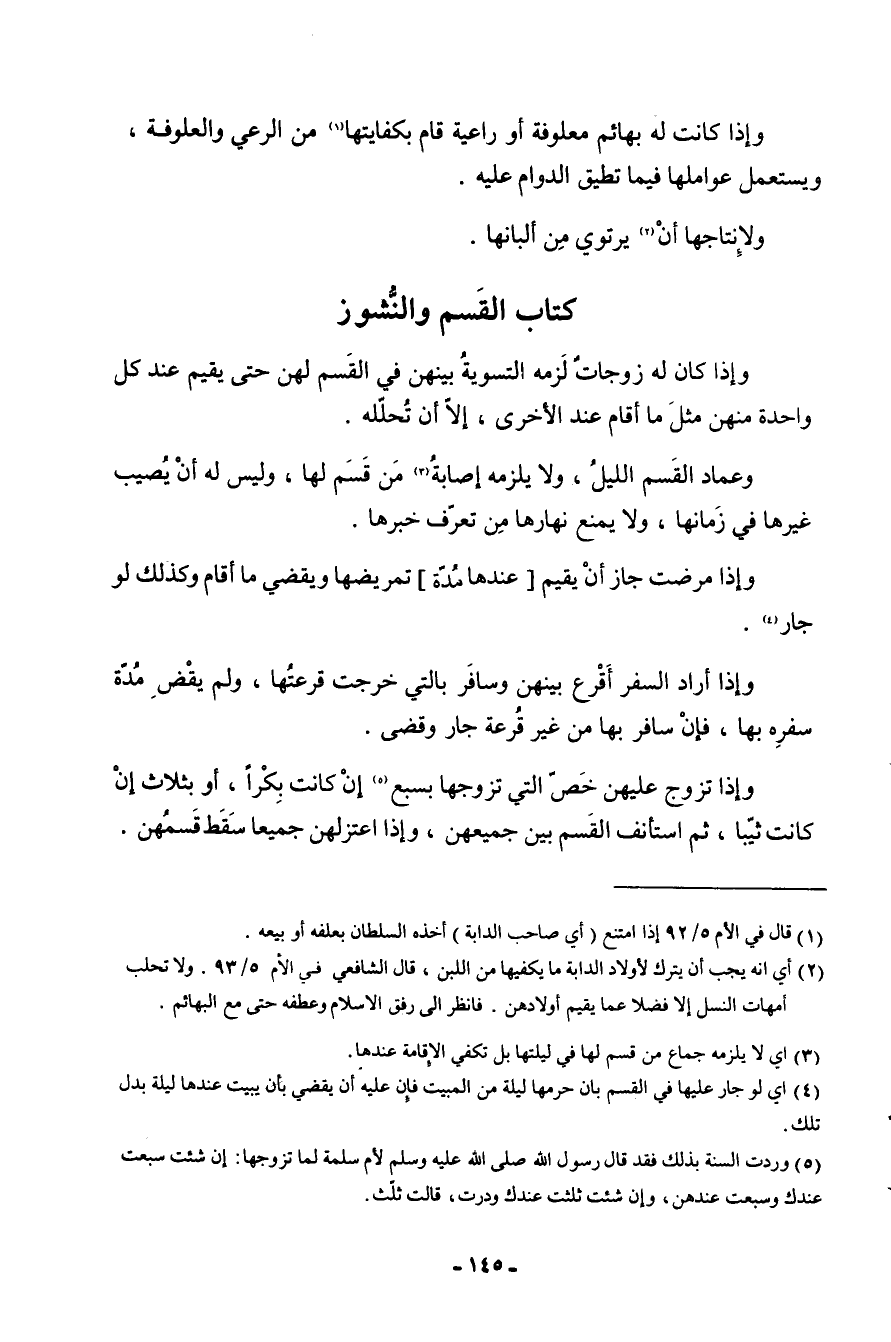 وإذا كانت له بهائم معلوفة أو راعية قام بكفايتها(١) من الرعي والعلوفة ،
ويستعمل عواملها فيما تطيق الدوام عليه .
ولإِنتاجها أنْ(٢) يرتوي مِن ألبانها .
كتاب القَسم والنُّشوز
وإذا كان له زوجاتٌ لَزمه التسويةُ بينهن في القَسم لهن حتى يقيم عند كل
واحدة منهن مثلَ ما أقام عند الأخرى ، إلاّ أن تُحلّله .
وعماد القَسم الليلُ ، ولا يلزمه إصابةُ(٣) مَن قَسَم لها ، وليس له أنْ يُصيب
غيرها في زَمانها ، ولا يمنع نهارها مِن تعرّف خبرها .
وإذا مرضت جاز أنْ يقيم [ عندها مُدّة ] تمريضها ويقضي ما أقام وكذلك لو
جار(٤) .
وإذا أراد السفر أَقْرع بينهن وسافَر بالتي خرجت قرعتُها ، ولم يقْضِ مُدّة
سفرِه بها ، فإنْ سافر بها من غير قُرعة جار وقضى .
وإذا تزوج عليهن خَصّ التي تزوجها بسبع(٥) إنْ كانت بِكْراً ، أو بثلاث إنْ
كانت ثيّبا ، ثم استأنف القَسم بين جميعهن ، وإذا اعتزلهن جميعا سَقَط قَسمُهن .
(١) قال في الأم ٥/ ٩٢ إذا امتنع ( أي صاحب الدابة ) أخذه السلطان بعلفه أو بيعه .
(٢) أي انه يجب أن يترك لأولاد الدابة ما يكفيها من اللبن ، قال الشافعي في الأم ٥/ ٩٣ . ولا تحلب
أمهات النسل إلا فضلا عما يقيم أولادهن . فانظر الى رفق الاسلام وعطفه حتى مع البهائم .
(٣) اي لا يلزمه جماع من قسم لها في ليلتها بل تكفي الإقامة عندها.
(٤) اي لو جار عليها في القسم بان حرمها ليلة من المبيت فإن عليه أن يقضي بأن يبيت عندها ليلة بدل
تلك.
(٥) وردت السنة بذلك فقد قال رسول الله صلى الله عليه وسلم لأم سلمة لما تزوجها: إن شئت سبعت
عندك وسبعت عندهن، وإن شئت ثلثت عندك ودرت، قالت ثلّث.
- ١٤٥ -